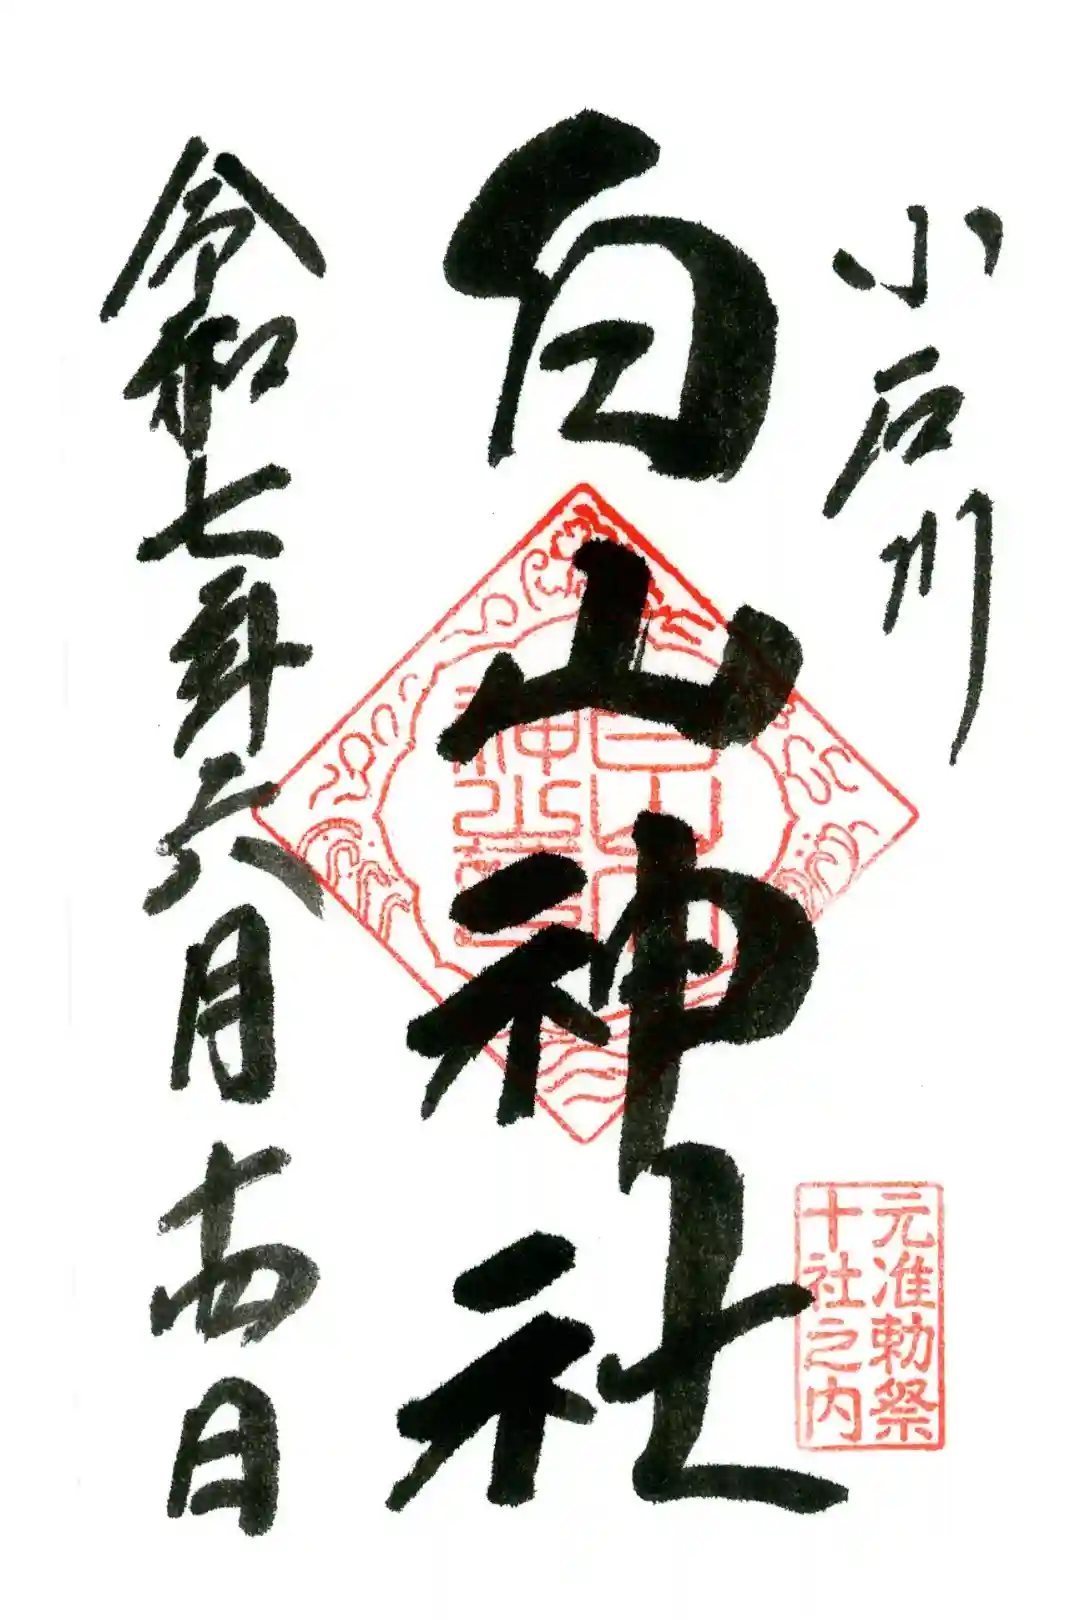 小石川
元准勅祭
十社之内
白山神社
令和七年六月十四日